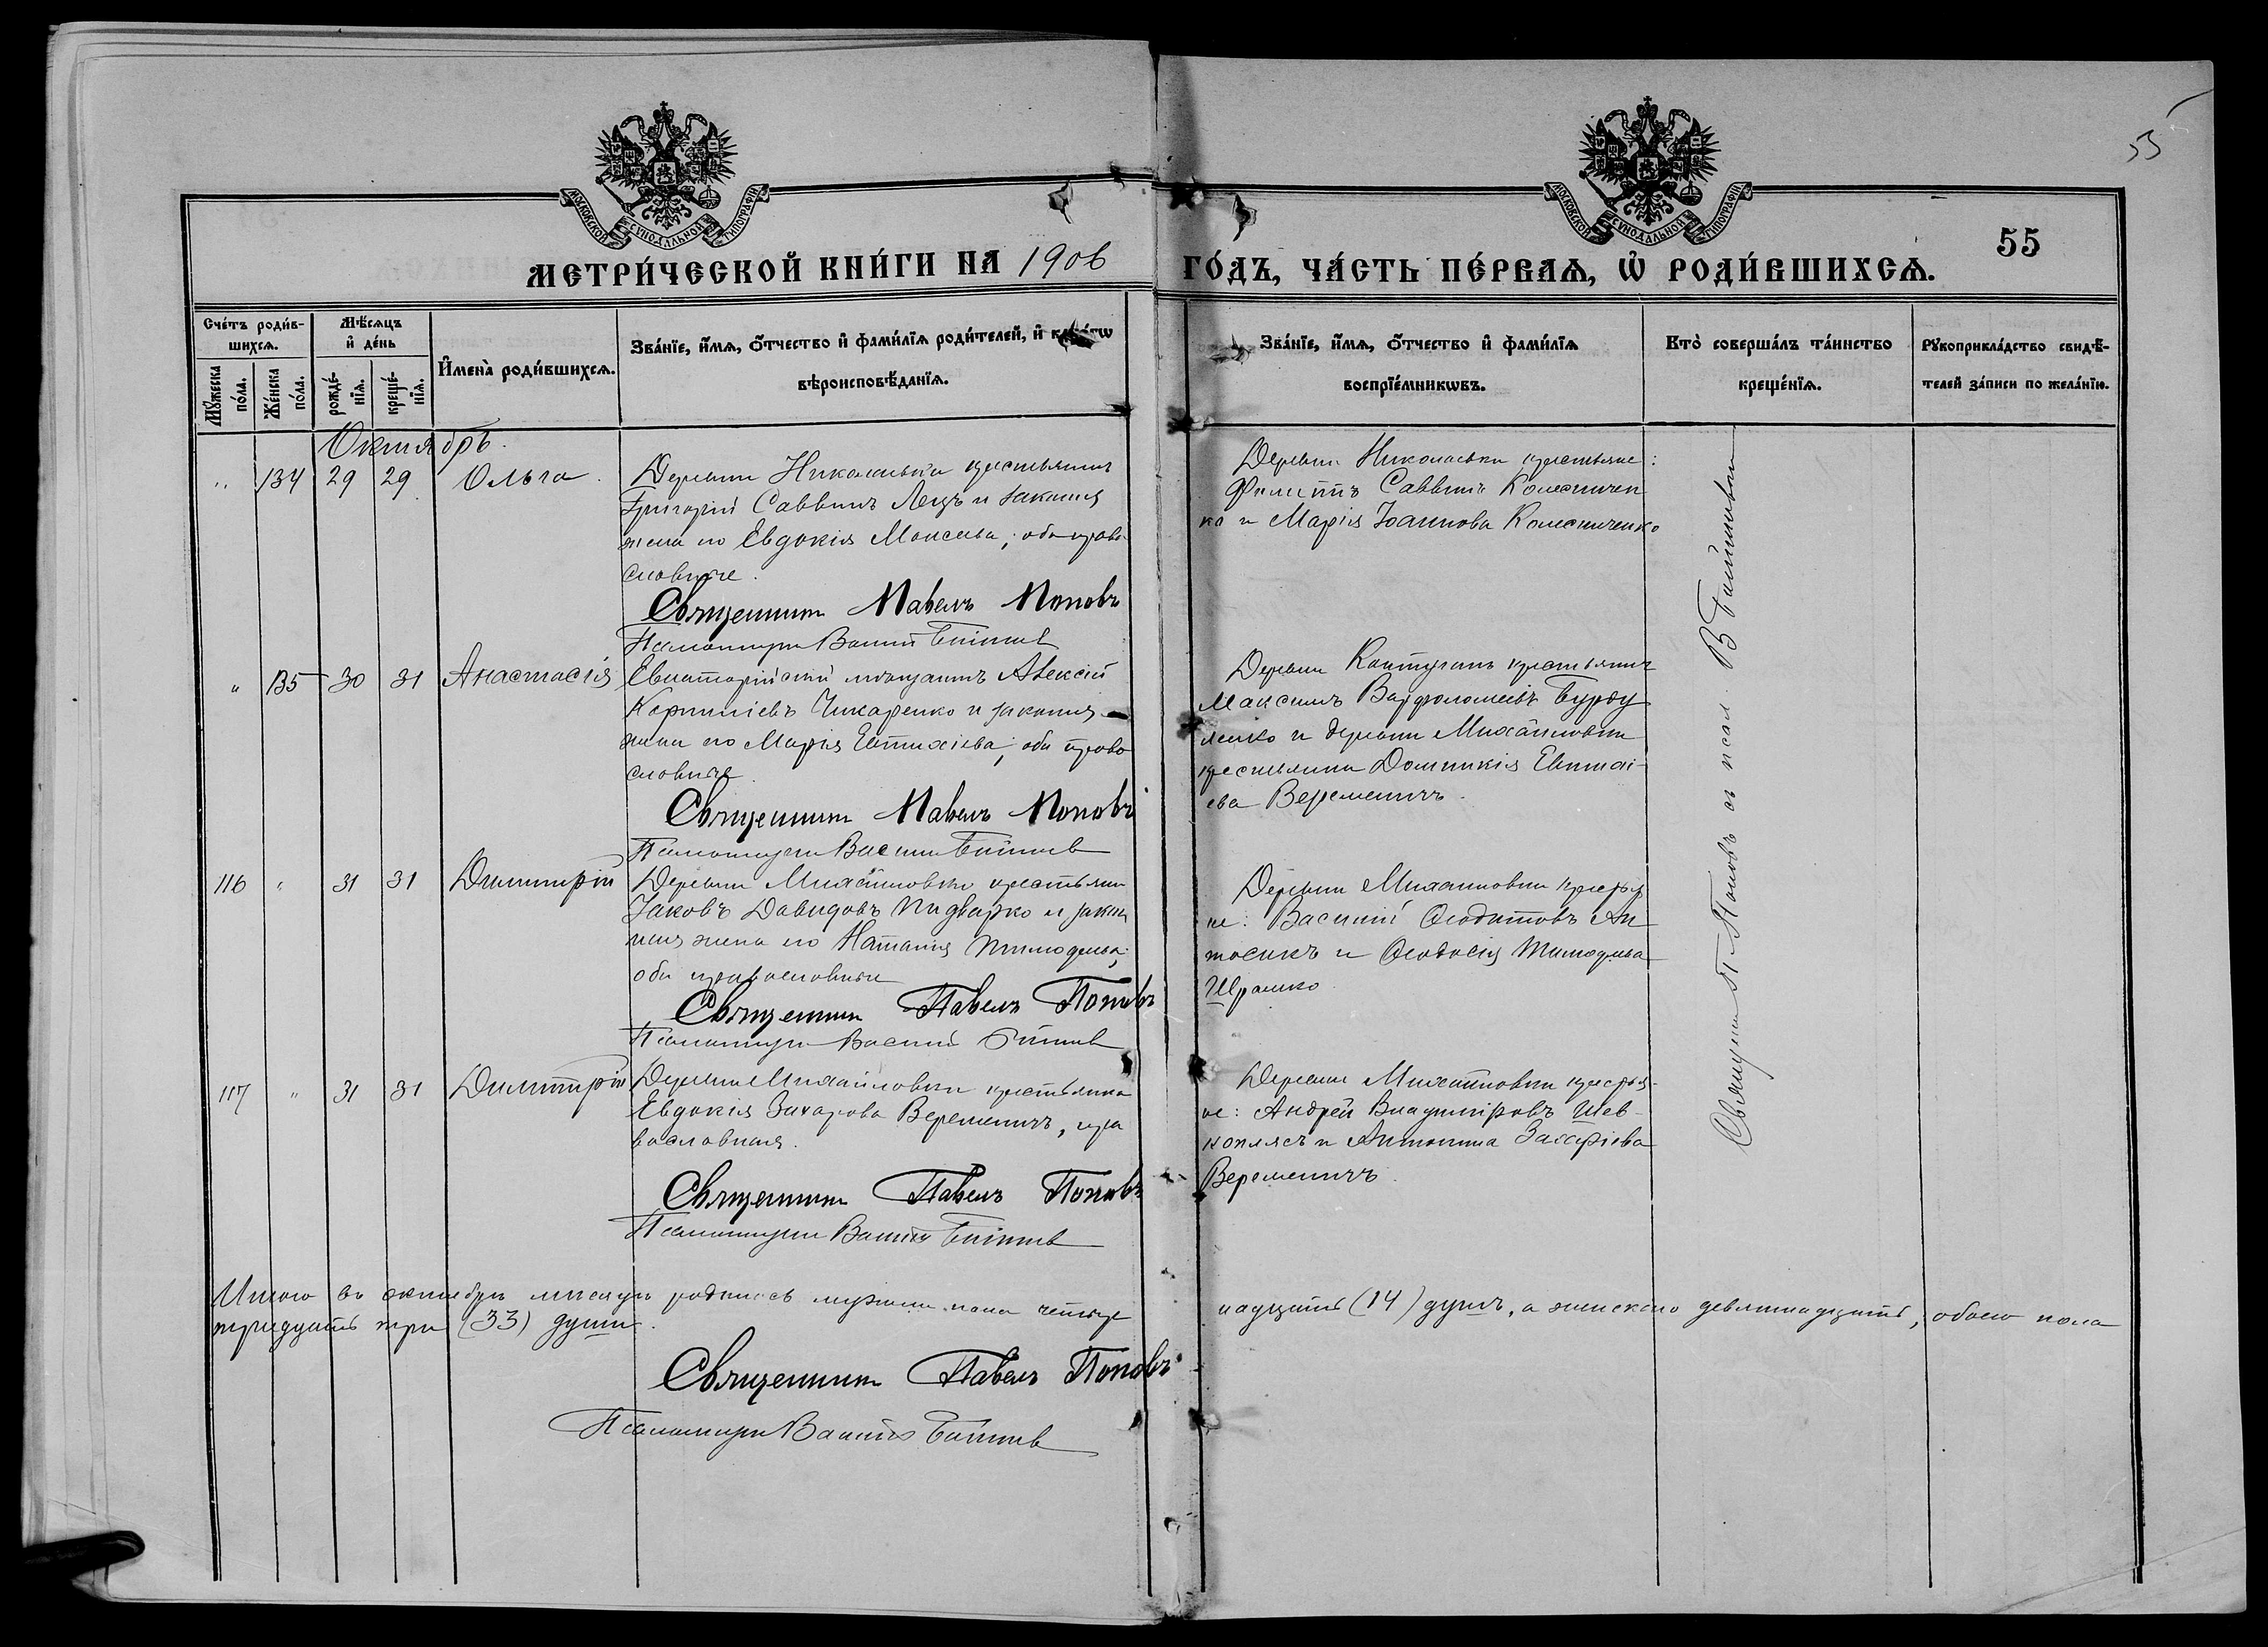 55
МОСКОВСКОЙ СѴНОДАЛЬНОЙ ТИПОГРАФІИ
МОСКОВСКОЙ СѴНОДАЛЬНОЙ ТИПОГРАФІИ
55
МЕТРИ́ЧЕСКОЙ КНИ́ГИ НА 1906 ГО́ДЪ, ЧА́СТЬ ПЕ́РВАѦ, Ѡ҆ РОДИ́ВШИХСѦ.
Счётъ роди́в-
шихсѧ.
Мꙋ́жеска
по́ла.
Же́нска
по́ла.
Мѣ́сѧцъ
и҆ де́нь
рожде́-
нїѧ.
креще́-
нїѧ.
И҆мена̀ роди́вшихсѧ.
Зва́нїе, и҆́мѧ, ѻ҆́тчество и҆ фами́лїѧ роди́телей, и҆
вѣроисповѣ́данїѧ.
Зва́нїе, и҆́мѧ, ѻ҆́тчество и҆ фами́лїѧ
воспрїе́мникѡвъ.
Кто̀ соверша́лъ та́инство
креще́нїѧ.
Рꙋкоприкла́дство свидѣ́-
телей за́писи по жела́нїю.
Октябрь.
" 134 29 29 Ольга.
Деревни Николаевки крестьянинъ
Григорій Саввинъ и законная
жена его Евдокія Моисеева; оба право-
славные.
Священникъ Павелъ Поповъ
Псаломщикъ Василій
Деревни Николаевки крестьяне:
Филиппъ Саввинъ Колесничен
ко и Марія Іоаннова Колесниченко
" 135 30 31 Анастасія
Евпаторійскій мѣщанинъ Алексій
Корниліевъ Чикаренко и законная
жена его Марія Евтихіева; оба право
славные.
Священникъ Павелъ Поповъ
Псаломщикъ Василій
Деревни Контуганъ крестьянинъ
Максимъ Варфоломеевъ Бурду
ленко и деревни Михайловки
крестьянка Домникія
ева Веременичъ.
116 " 31 31 Димитрій
Деревни Михайловки крестьянинъ
Іаковъ Давидовъ Пидварко и закон
ная жена его Наталия Тимофеева;
оба православные
Священникъ Павелъ Поповъ
Псаломщикъ Василій
Деревни Михайловки крестья
не: Василій Феодотовъ Ан
тосикъ и Феодосія Тимофеева
Шрамко.
117 " 31 31 Димитрій
Деревни Михайловки крестьянка
Евдокія Захарова Веременичъ, пра
вославная.
Священникъ Павелъ Поповъ
Псаломщикъ Василій
Деревни Михайловки крестья-
не: Андрей Владиміровъ Шев-
коплясъ и Антонина Захаріева
Веременичъ.
Священникъ П. Поповъ съ псал. В
Итого въ октябрѣ мѣсяцѣ родилось мужеска пола четыр надцать (14) душъ, а женскаго девятнадцать, обоего пола
тридцать три (33) души.
Священникъ Павелъ Поповъ
Псаломщикъ Василій